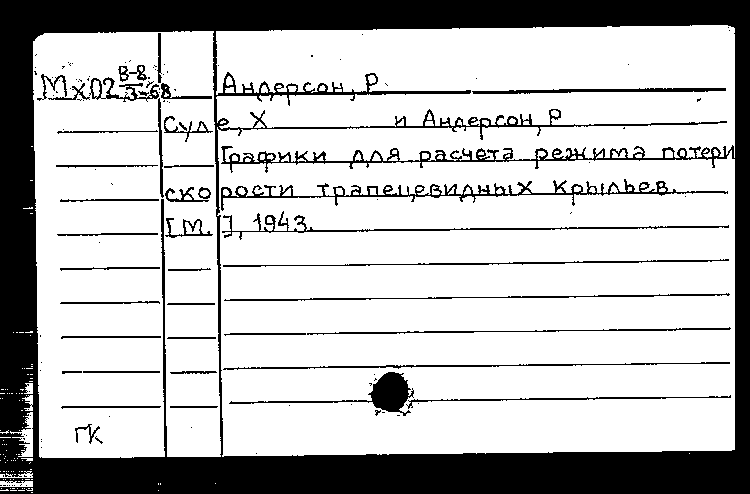 Мх02 В-8/3-68 Андерсон, Р
Суле, Х и Андерсон, Р
Графики для расчета режима потери
скорости трапецевидных крыльев.
[М.], 1943.
ГК